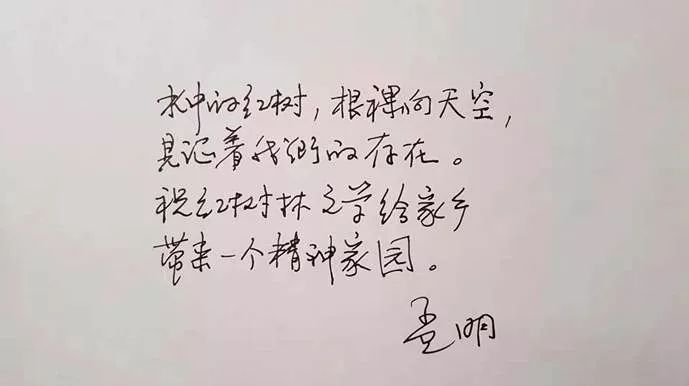 水中的红树，根裸向天空，
见记着我们的存在。
祝红树林文学给家乡
带来一个精神家园。
孟明